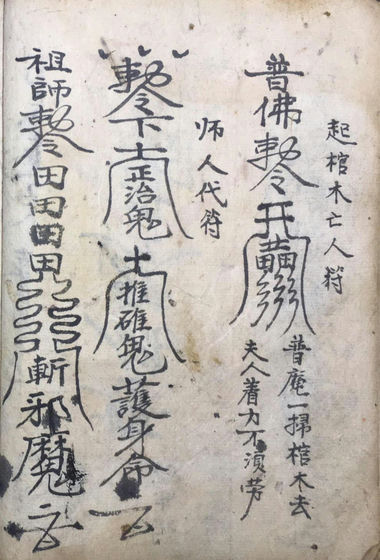 起棺木亡人符
普佛勅令开
普庵一掃棺木去
夫人着力不須劳
师人代符
勅令下士正治鬼士推碓鬼護身命
祖師勅令田田田田斬邪魔